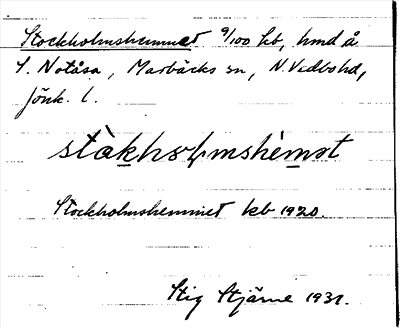 Stockholmshemmet 9/100 kb, hmd å
S. Notåsa, Marbäcks sn, N. Vedbo hd,
Jönk. l.
stàkho𝑙mshèmǝt
Stockholmshemmet kb 1920.
Stig Stjärne 1931.